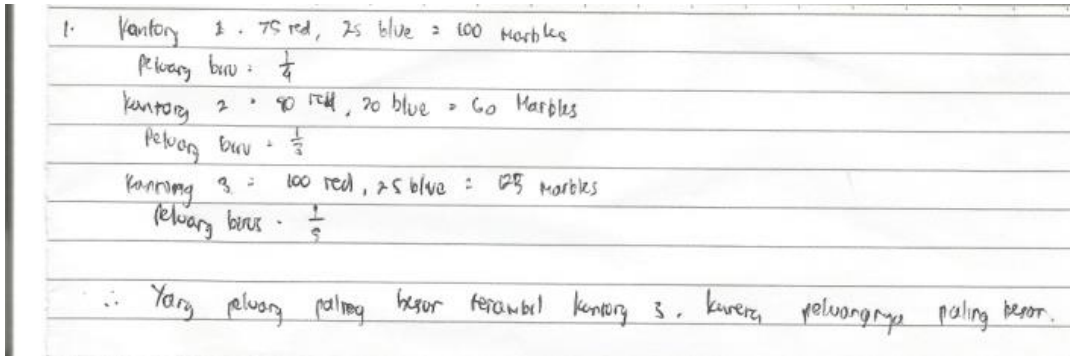 1. Kantong 1 . 75 red, 25 blue = 100 Marbles
Peluang biru : 1/4
Kantong 2 = 40 red, 20 blue = 60 Marbles
Peluang biru = 1/3
Kantong 3 = 100 red, 25 blue = 125 Marbles
Peluang birus . 1/5
∴ Yang peluang paling besar terambil kantong 3. karena peluangnya paling besar.